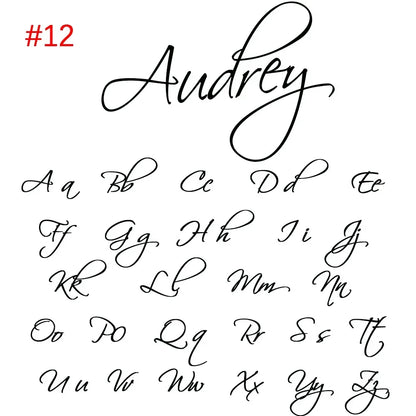 #12
Audrey
A a Bb Cc D d Ee
Ff Gg H h I i Jj
Kk Ll Mm Nn
Oo PO Qq Rr S s Tt
U u Vv Ww Xx Yy Zz